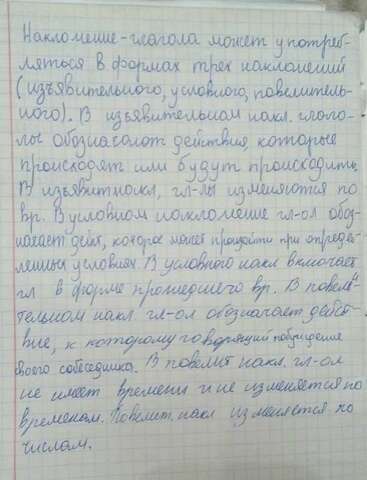 Наклонение - глагола может употреб-
ляться в формах трех наклонений
(изъявительного, условного, повелитель-
ного). В изъявительном накл. глаго-
лы обозначают действия, которые
происходят или будут происходить.
В изъявит накл, гл-лы изменяются по
вр. В условном наклонение гл-ол обоз-
начает дейст, которое может произойти при определ-
ленных условиях. В условного накл включает
гл в форме прошедшего вр. В повели-
тельном накл гл-ол обозначает дейст-
вие, к которому говорящий побуждение
своего собеседника. В повелит накл. гл-ол
не имеет времени и не изменяется по
временам. Повелит. накл изменяется по
числам.